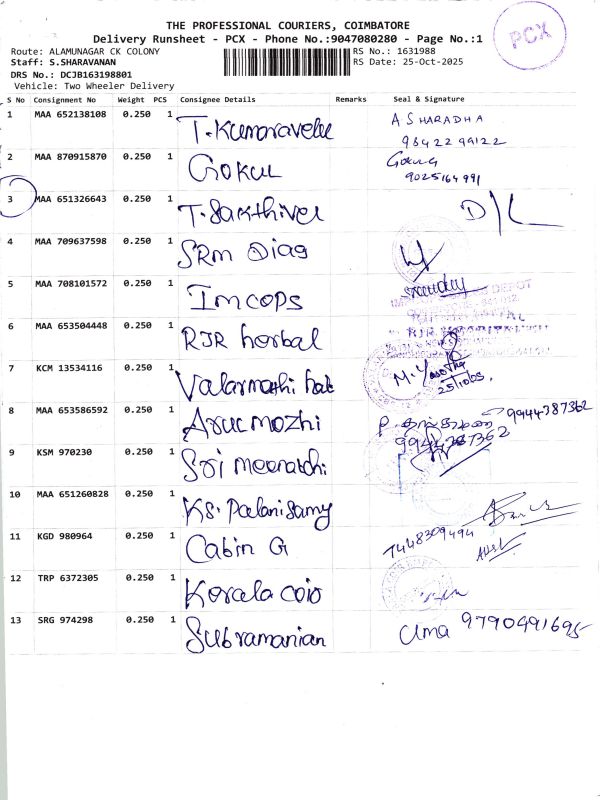 THE PROFESSIONAL COURIERS, COIMBATORE
Delivery Runsheet - PCX - Phone No.:9047080280 - Page No.:1
PCX
Route: ALAMUNAGAR CK COLONY
RS No.: 1631988
Staff: S.SHARAVANAN
RS Date: 25-Oct-2025
DRS No.: DCJB163198801
Vehicle: Two Wheeler Delivery
S No Consignment No Weight PCS Consignee Details Remarks Seal & Signature
1 MAA 652138108 0.250 1 T.Kumaravelu A SHARADHA
9842299122
2 MAA 870915870 0.250 1 Gokul Gokul
9025164991
3 MAA 651326643 0.250 1 T.Sakthivel D/L
4 MAA 709637598 0.250 1 SRM Diag
5 MAA 708101572 0.250 1 Imcops
6 MAA 653504448 0.250 1 RJR herbal
7 KCM 13534116 0.250 1 Valarmathi hat M.Yasotha
25/10/25.
8 MAA 653586592 0.250 1 Arulmozhi 9944387362
9944387362
9 KSM 970230 0.250 1 Sri meenatchi
10 MAA 651260828 0.250 1 KS.Palanisamy
11 KGD 980964 0.250 1 Cabin G 7448309494
12 TRP 6372305 0.250 1 Kerala coio
13 SRG 974298 0.250 1 Subramanian Uma 9790491695